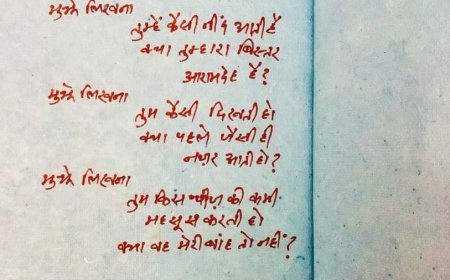 मुझे लिखना
तुम्हें कैसी नींद आती है
क्या तुम्हारा बिस्तर
आरामदेह है?
मुझे लिखना
तुम कैसी दिखती हो
क्या पहले जैसी ही
नज़र आती हो?
मुझे लिखना
तुम किस चीज़ की कमी
महसूस करती हो
क्या वह मेरी बांह तो नहीं?